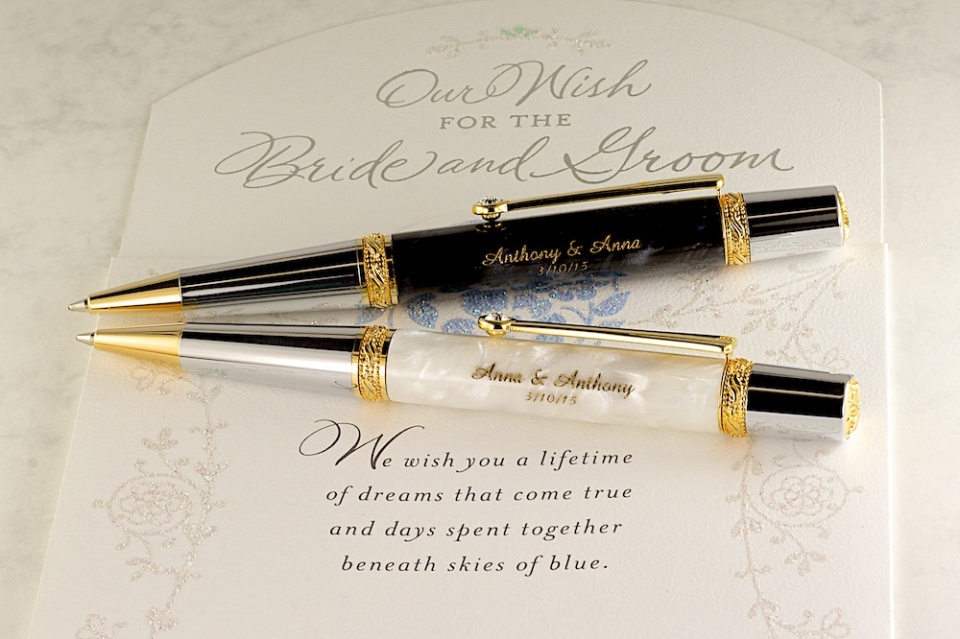 Our Wish
FOR THE
Bride and Groom
Anthony & Anna
3/10/15
Anna & Anthony
3/10/15
We wish you a lifetime
of dreams that come true
and days spent together
beneath skies of blue.